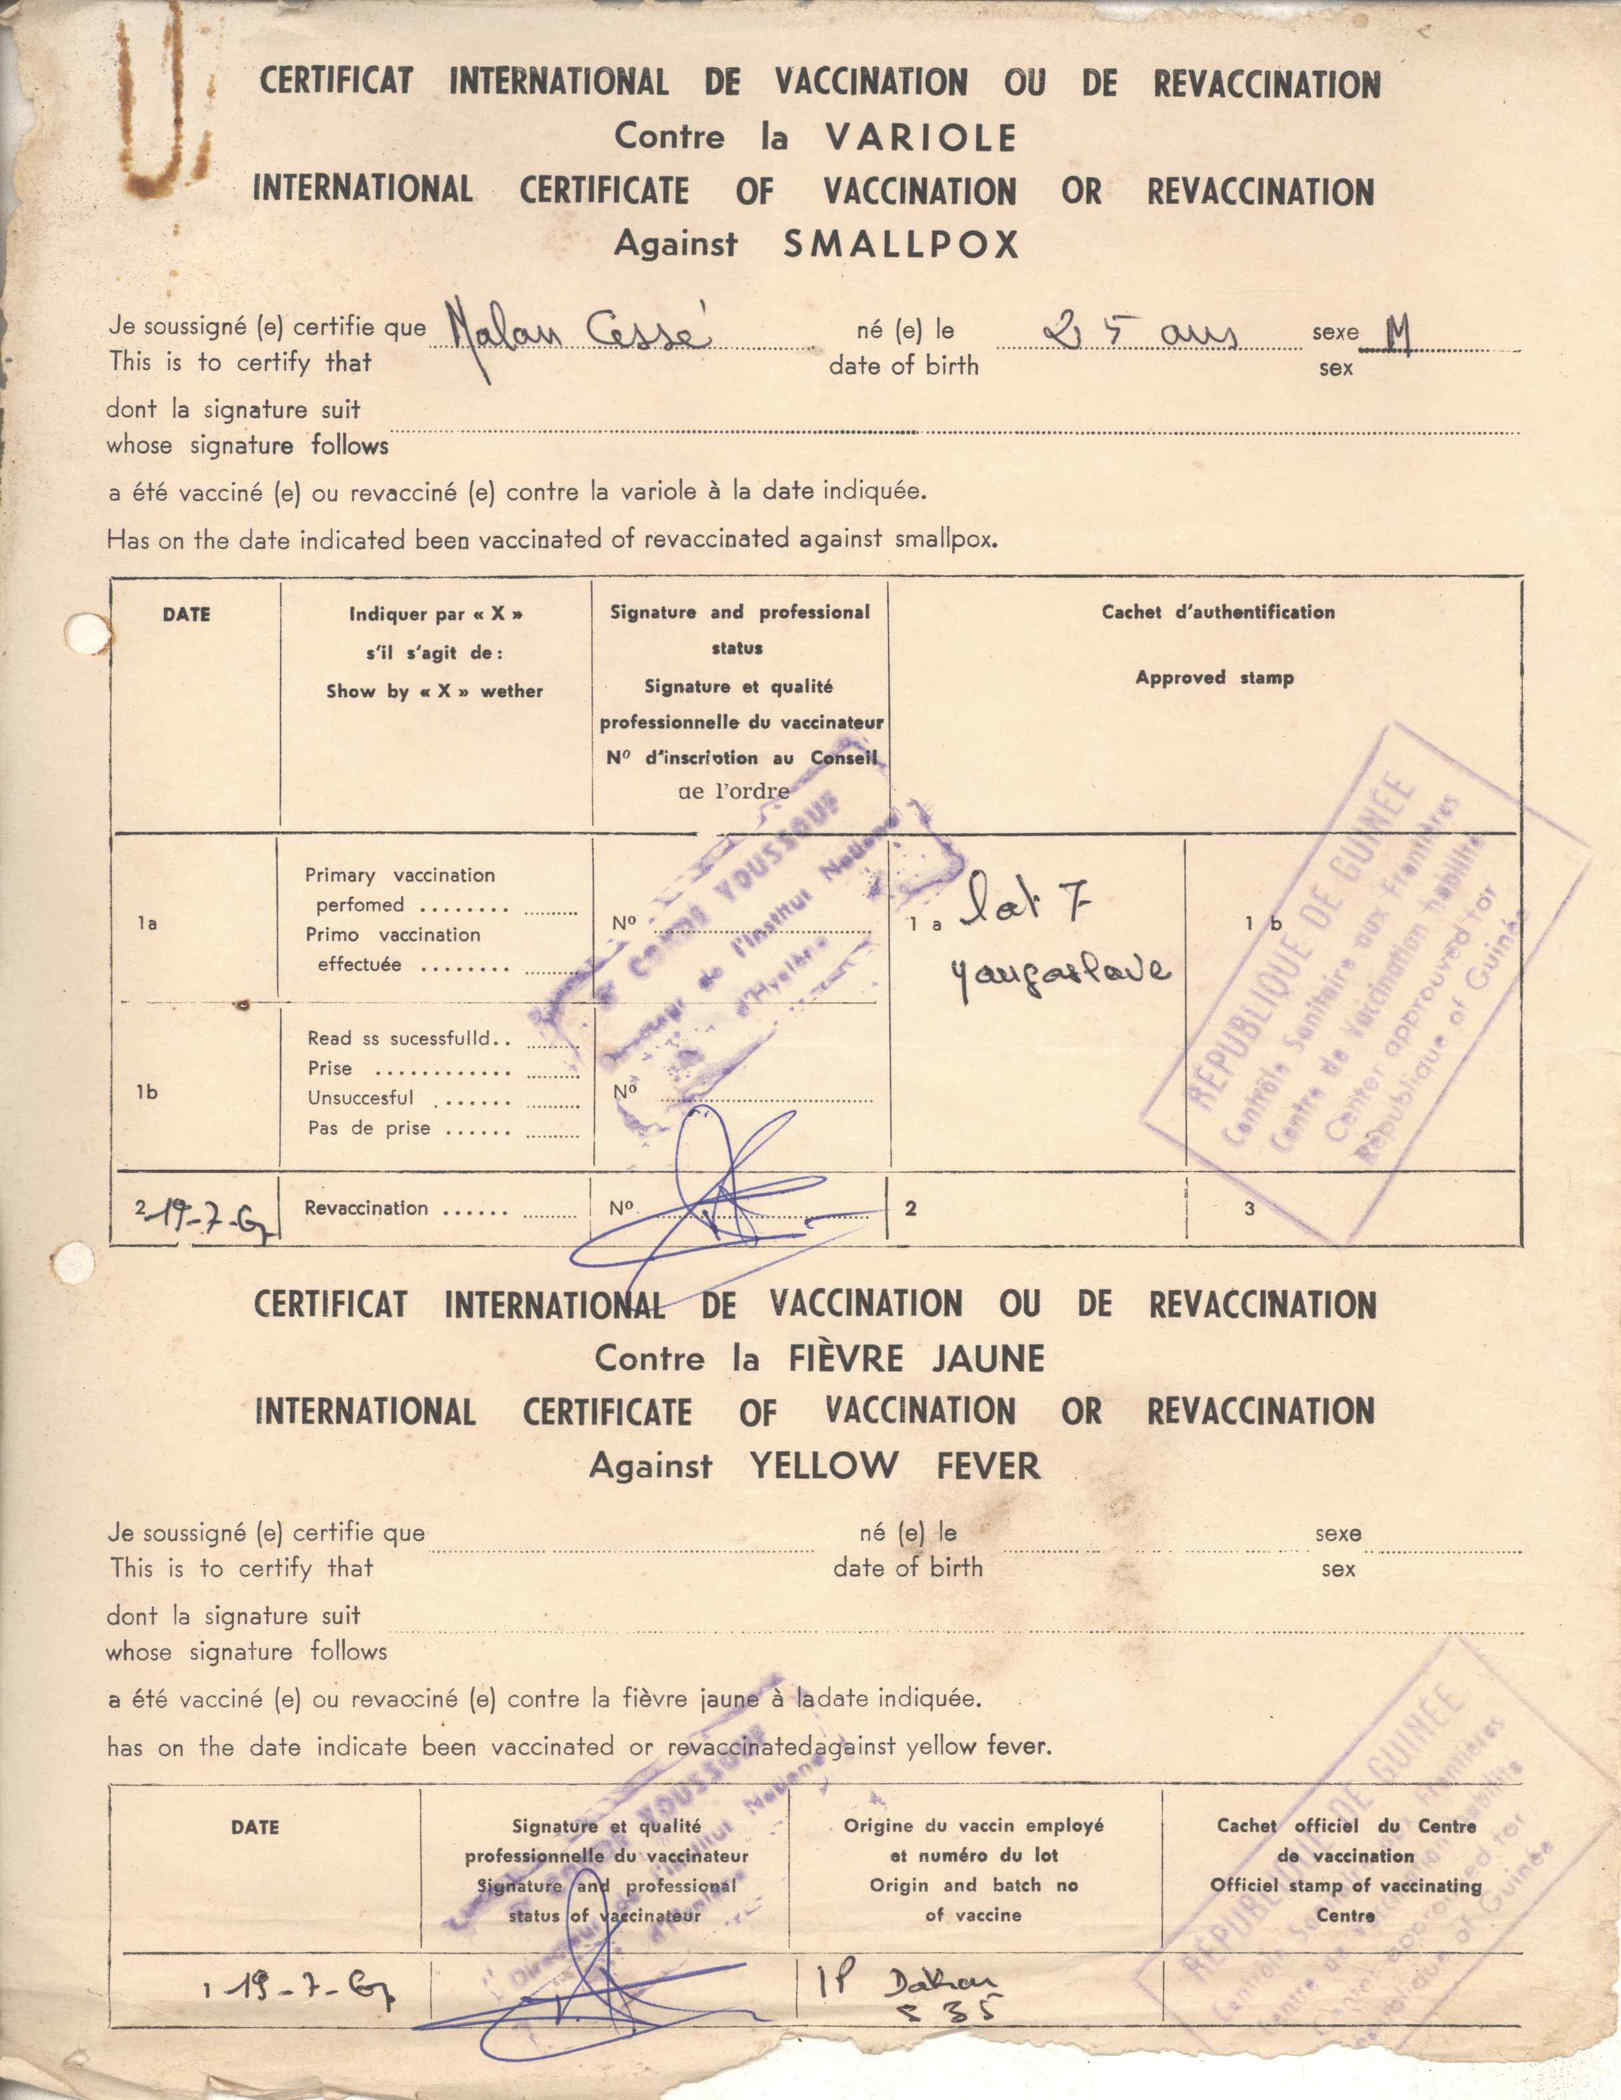 CERTIFICAT INTERNATIONAL DE VACCINATION OU DE REVACCINATION
Contre la VARIOLE
INTERNATIONAL CERTIFICATE OF VACCINATION OR REVACCINATION
Against SMALLPOX
Je soussigné (e) certifie que Malan Cessé né (e) le 25 ans sexe M
This is to certify that date of birth sex
dont la signature suit
whose signature follows
a été vacciné (e) ou revacciné (e) contre la variole à la date indiquée.
Has on the date indicated been vaccinated of revaccinated against smallpox.
DATE
Indiquer par « X »
s'il s'agit de :
Show by « X » wether
Signature and professional
status
Signature et qualité
professionnelle du vaccinateur
Nº d'inscription au Conseil
de l'ordre
Cachet d'authentification
Approved stamp
1a
Primary vaccination
perfomed ........
Primo vaccination
effectuée ........
Nº
1 a lot 7
yougoslave
1 b
CONDE YOUSSOUF
de l'Institut National
d'Hygiène
REPUBLIQUE DE GUINÉE
Contrôle Sanitaire aux Frontières
Centre de Vaccination habilité
Center approuved for
Republique of Guinée
1b
Read ss sucessfulld..
Prise ............
Unsuccesful .......
Pas de prise ......
Nº
2 19-7-67 Revaccination ...... Nº 2 3
CERTIFICAT INTERNATIONAL DE VACCINATION OU DE REVACCINATION
Contre la FIÈVRE JAUNE
INTERNATIONAL CERTIFICATE OF VACCINATION OR REVACCINATION
Against YELLOW FEVER
Je soussigné (e) certifie que né (e) le sexe
This is to certify that date of birth sex
dont la signature suit
whose signature follows
a été vacciné (e) ou revacciné (e) contre la fièvre jaune à ladate indiquée.
has on the date indicate been vaccinated or revaccinatedagainst yellow fever.
DATE
Signature et qualité
professionnelle du vaccinateur
Signature and professional
status of vaccinateur
Origine du vaccin employé
et numéro du lot
Origin and batch no
of vaccine
Cachet officiel du Centre
de vaccination
Officiel stamp of vaccinating
Centre
CONDE YOUSSOUF
Directeur de l'Institut National
d'Hygiène
REPUBLIQUE DE GUINÉE
Contrôle Sanitaire aux Frontières
Centre de Vaccination habilité
Center approuved for
Republique of Guinée
1 19-7-67
IP Dakar
835